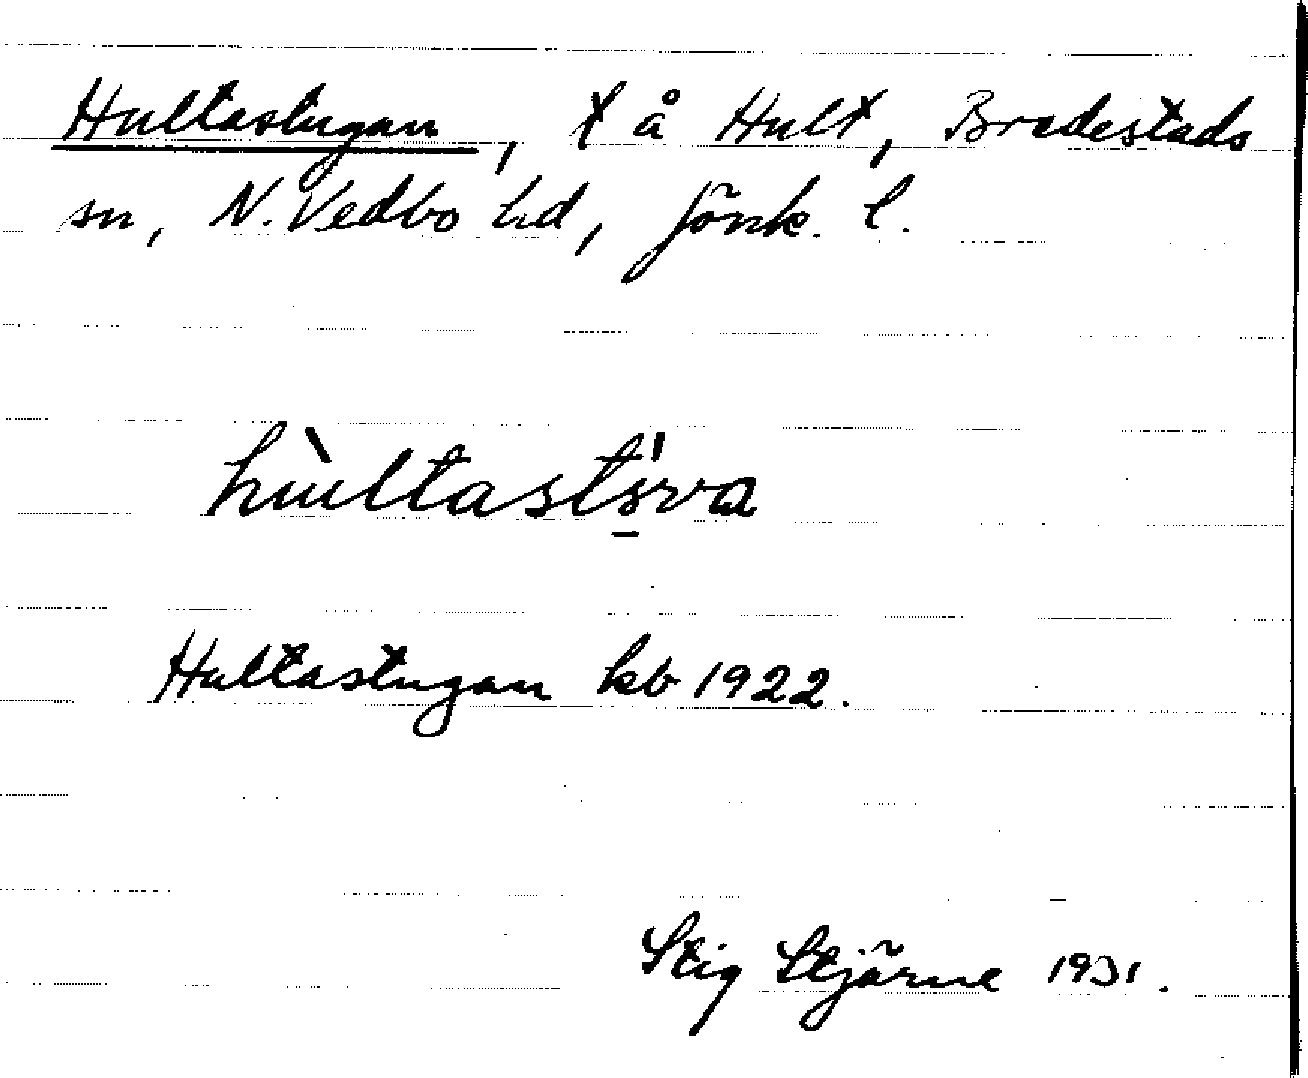 Hultastugan, t å Hult, Bredestads
sn, N. Vedbo hd, Jönk. l.
hùltasts̠'va
Hultastugan kb 1922.
Stig Stjärne 1931.